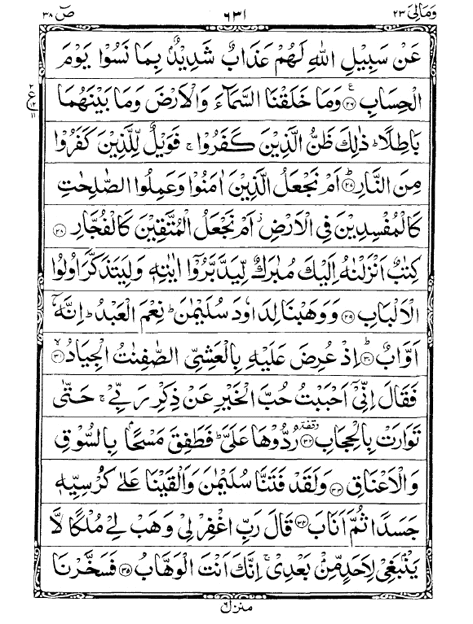 وَمَالِیَ ٢٣ ٦٣١ صٓ ٣٨
عَنْ سَبِيْلِ اللّٰهِ لَهُمْ عَذَابٌ شَدِيْدٌۢ بِمَا نَسُوْا يَوْمَ
الْحِسَابِ ﴿٢٦﴾ وَمَا خَلَقْنَا السَّمَآءَ وَالْاَرْضَ وَمَا بَيْنَهُمَا
بَاطِلًا ؕ ذٰلِكَ ظَنُّ الَّذِيْنَ كَفَرُوْا ۚ فَوَيْلٌ لِّلَّذِيْنَ كَفَرُوْا
مِنَ النَّارِ ﴿٢٧﴾ اَمْ نَجْعَلُ الَّذِيْنَ اٰمَنُوْا وَعَمِلُوا الصّٰلِحٰتِ
كَالْمُفْسِدِيْنَ فِى الْاَرْضِ ز اَمْ نَجْعَلُ الْمُتَّقِيْنَ كَالْفُجَّارِ ﴿٢٨﴾
كِتٰبٌ اَنْزَلْنٰهُ اِلَيْكَ مُبٰرَكٌ لِّيَدَّبَّرُوْۤا اٰيٰتِهٖ وَلِيَتَذَكَّرَ اُولُوا
الْاَلْبَابِ ﴿٢٩﴾ وَوَهَبْنَا لِدَاوٗدَ سُلَيْمٰنَ ؕ نِعْمَ الْعَبْدُ ؕ اِنَّهٗۤ
اَوَّابٌ ﴿٣٠﴾ اِذْ عُرِضَ عَلَيْهِ بِالْعَشِىِّ الصّٰفِنٰتُ الْجِيَادُ ﴿٣١﴾
فَقَالَ اِنِّىْۤ اَحْبَبْتُ حُبَّ الْخَيْرِ عَنْ ذِكْرِ رَبِّىْ ۚ حَتّٰى
تَوَارَتْ بِالْحِجَابِ ﴿٣٢﴾ رُدُّوْهَا عَلَىَّ ؕ فَطَفِقَ مَسْحًۢا بِالسُّوْقِ
وَالْاَعْنَاقِ ﴿٣٣﴾ وَلَقَدْ فَتَنَّا سُلَيْمٰنَ وَاَلْقَيْنَا عَلٰى كُرْسِيِّهٖ
جَسَدًا ثُمَّ اَنَابَ ﴿٣٤﴾ قَالَ رَبِّ اغْفِرْ لِىْ وَهَبْ لِىْ مُلْكًا لَّا
يَنْۢبَغِىْ لِاَحَدٍ مِّنْۢ بَعْدِىْ ۚ اِنَّكَ اَنْتَ الْوَهَّابُ ﴿٣٥﴾ فَسَخَّرْنَا
منزل ٦